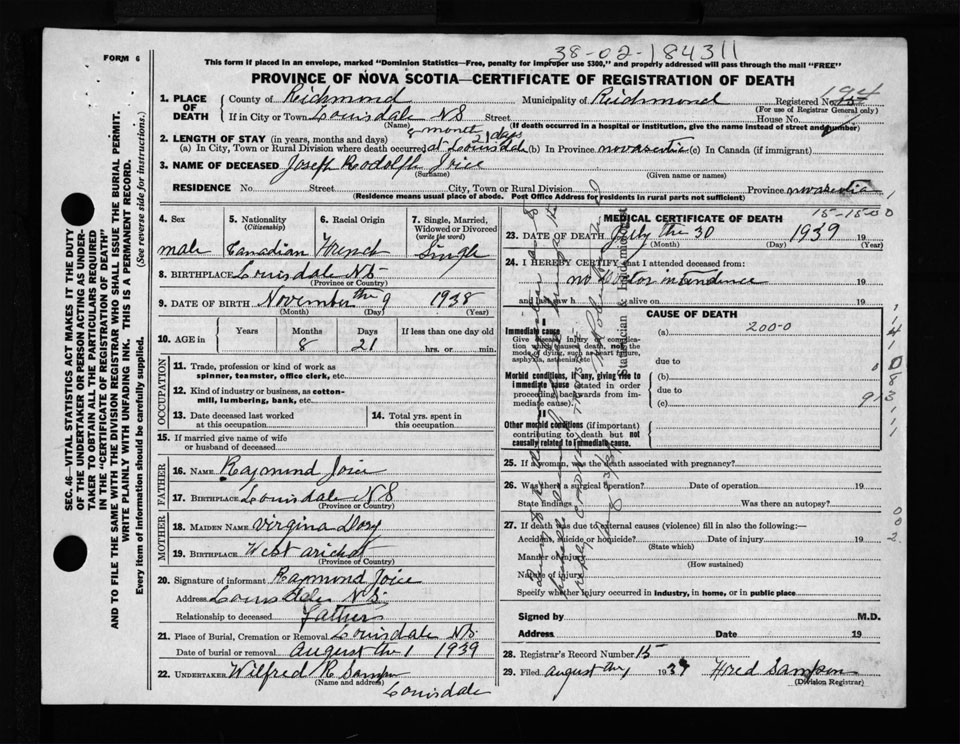 38-02-184311
FORM 6
This form if placed in an envelope, marked "Dominion Statistics—Free, penalty for improper use $300," and properly addressed will pass through the mail "FREE"
PROVINCE OF NOVA SCOTIA—CERTIFICATE OF REGISTRATION OF DEATH
194
1. PLACE OF DEATH
County of Richmond Municipality of Richmond Registered No. 15
(For use of Registrar General only)
If in City or Town Louisdale NS Street House No.
(Name) (If death occurred in a hospital or institution, give the name instead of street and number)
8 month 21 days
2. LENGTH OF STAY (in years, months and days)
(a) In City, Town or Rural Division where death occurred at Louisdale (b) In Province novascotia (c) In Canada (if immigrant)
3. NAME OF DECEASED Joseph Rodolph Joice
(Surname) (Given name or names)
RESIDENCE No. Street City, Town or Rural Division Province novascotia
(Residence means usual place of abode. Post Office Address for residents in rural parts not sufficient)
4. Sex
male
5. Nationality (Citizenship)
Canadian
6. Racial Origin
French
7. Single, Married, Widowed or Divorced (write the word)
Single
8. BIRTHPLACE Louisdale NS
(Province or Country)
9. DATE OF BIRTH November the 9 1938
(Month) (Day) (Year)
10. AGE in
Years Months Days If less than one day old
8 21 hrs. or min.
OCCUPATION
11. Trade, profession or kind of work as spinner, teamster, office clerk, etc.
12. Kind of industry or business, as cotton-mill, lumbering, bank, etc.
13. Date deceased last worked at this occupation
14. Total yrs. spent in this occupation
15. If married give name of wife or husband of deceased
FATHER
16. NAME Raymond Joice
17. BIRTHPLACE Louisdale NS
(Province or Country)
MOTHER
18. MAIDEN NAME Virgina Dory
19. BIRTHPLACE West arichat
(Province or Country)
20. Signature of informant Raymond Joice
Address Louisdale NS
Relationship to deceased Father
21. Place of Burial, Cremation or Removal Louisdale NS
Date of burial or removal August the 1 1939
22. UNDERTAKER Wilfred R Sampson
(Name and address)
Louisdale
MEDICAL CERTIFICATE OF DEATH
15-15-00
23. DATE OF DEATH July the 30 1939 19
(Month) (Day) (Year)
24. I HEREBY CERTIFY that I attended deceased from:
no Doctor in tendence 19
and last saw h alive on 19
CAUSE OF DEATH
Immediate cause
Give disease, injury or complication which causes death, not the mode of dying, such as heart failure, asphyxia, asthenia, etc.
(a) 200-0
due to
Morbid conditions, if any, giving rise to immediate cause (stated in order proceeding backwards from immediate cause).
(b)
due to
(c)
Other morbid conditions (if important) contributing to death but not causally related to immediate cause.
25. If a woman, was the death associated with pregnancy?
26. Was there a surgical operation? Date of operation 19
State findings Was there an autopsy?
27. If death was due to external causes (violence) fill in also the following:—
Accident, suicide or homicide? Date of injury 19
(State which)
Manner of injury
(How sustained)
Nature of injury
Specify whether injury occurred in industry, in home, or in public place
Signed by M.D.
Address Date 19
28. Registrar's Record Number 15
29. Filed august the 1 1939
(Division Registrar)
SEC. 46—VITAL STATISTICS ACT MAKES IT THE DUTY OF THE UNDERTAKER OR PERSON ACTING AS UNDERTAKER TO OBTAIN ALL THE PARTICULARS REQUIRED IN THE "CERTIFICATE OF REGISTRATION OF DEATH" AND TO FILE THE SAME WITH THE DIVISION REGISTRAR WHO SHALL ISSUE THE BURIAL PERMIT.
WRITE PLAINLY WITH UNFADING INK. THIS IS A PERMANENT RECORD.
Every item of information should be carefully supplied. (See reverse side for instructions.)